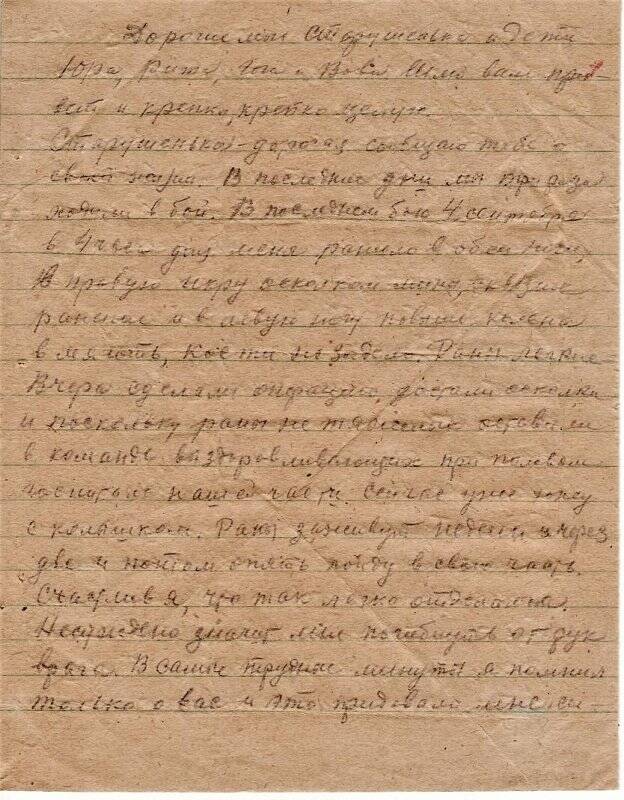 Дорогие мои Старушенька и дети
Юра, Рита, и Вова Шлю вам при-
вет и крепко, крепко целую.
Старушенька дорогая сообщаю тебе о
своей жизни. В последние дни мы три раза
ходили в бой. В последнем бою 4 сентября
в 4 часа дня меня ранило в обе ноги,
В правую икру осколком мины сквозное
ранение и в левую ногу повыше колена
в мякоть, кости не задело. Раны легкие
Вчера сделали операцию достали осколки
и поскольку раны не тяжелые оставили
в команде выздоравливающих при полевом
госпитале нашей части. Сейчас уже хожу
с колышком. Раны заживут недели через
две и потом опять пойду в свою часть.
Счастлив я, что так легко отделался.
Несуждено значит мне погибнуть от рук
врага. В самые трудные минуты я помнил
только о вас и это придовало мне си-